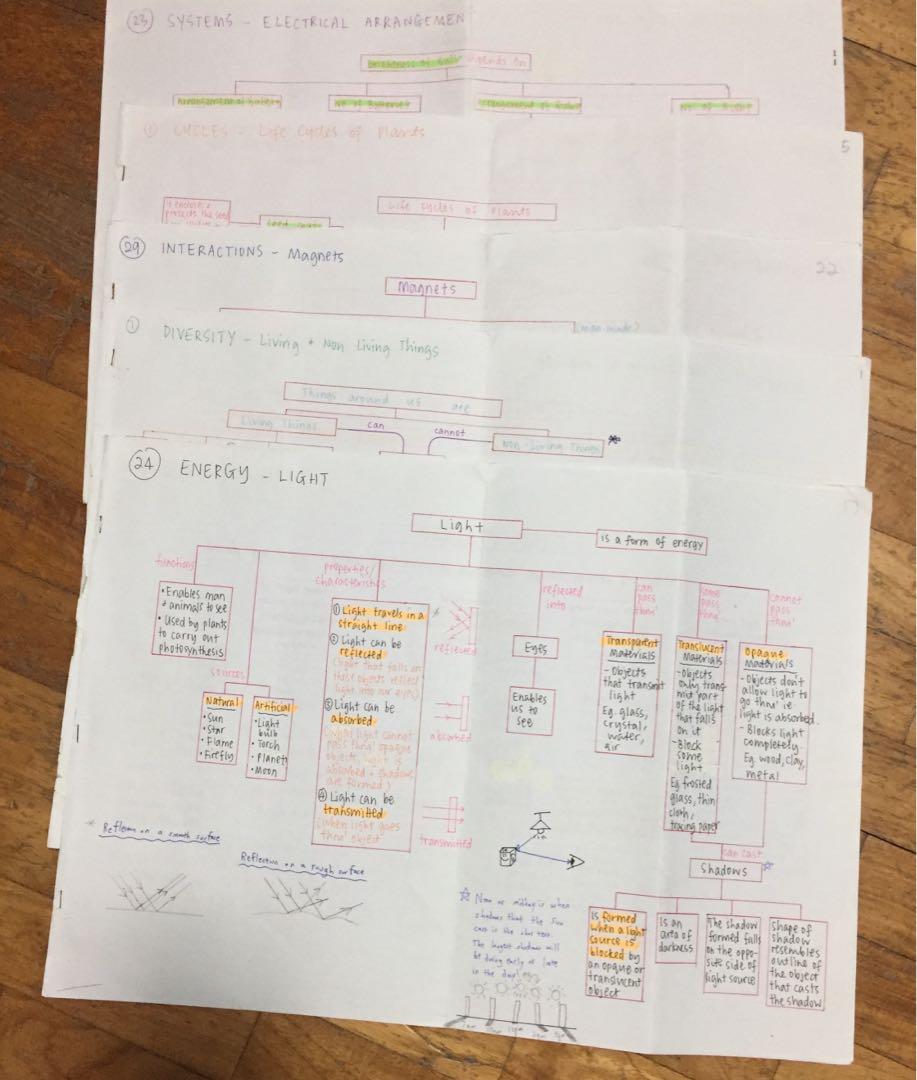 23 SYSTEMS - ELECTRICAL ARRANGEMEN
depends on
5
1 CYCLES - Life Cycles of Plants
protects the seed
Life Cycles of Plants
29 INTERACTIONS - Magnets
22
Magnets
(man-made)
1 DIVERSITY - Living + Non Living Things
Things around us are
Living Things
can
cannot
Non-Living Things *
24 ENERGY - LIGHT
Light
is a form of energy
functions
• Enables man
+ animals to see
• Used by plants
to carry out
photosynthesis
sources
Natural
• Sun
• Star
• Flame
• Firefly
Artificial
• Light
bulb
• Torch
• Planet
• Moon
properties/
characteristics
① Light travels in a
straight line
② Light can be
reflected
(light that falls on
these objects reflect
light into our eyes)
③ Light can be
absorbed
(when light cannot
pass thru' opaque
objects, light is
absorbed + shadows
are formed)
④ Light can be
transmitted
(when light goes
thru' object
*
reflected
absorbed
transmitted
reflected
into
Eyes
Enables
us to
see
can
pass
thru'
Transparent
Materials
- Objects
that transmit
light
Eg. glass,
crystal,
water,
air
some
pass
thru'
Translucent
Materials
- Objects
only trans
mit part
of the light
that falls
on it
- Block
some
light
Eg frosted
glass, thin
cloth,
tracing paper
cannot
pass
thru'
Opaque
Materials
- Objects don't
allow light to
go thru' ie
light is absorbed.
- Blocks light
completely
Eg. wood, clay,
metal
can cast
Shadows ☆
is formed
when a light
source is
blocked by
an opaque or
translucent
object
is an
area of
darkness
The shadow
formed falls
on the oppo-
site side of
light source
Shape of
shadow
resembles
outline of
the object
that casts
the shadow
* Reflection on a smooth surface
Reflection on a rough surface
☆ Noon or midday is when
shadows that the sun
cast is the shortest.
The longest shadow will
be during early or late
in the day